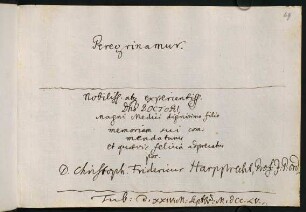 Peregrinamur.
Nobiliss. atq experientiss.
Dno DOCTORI,
Magni Medici dignissimo filio
memoriam sui com
mendaturus
et quævis felicia adprecatus
scr.
D. Christoph. Fridericus Harpprecht, Prof. J. Ord.
Tub. D. XXIV. M. Septbr. M. DCC. LV.